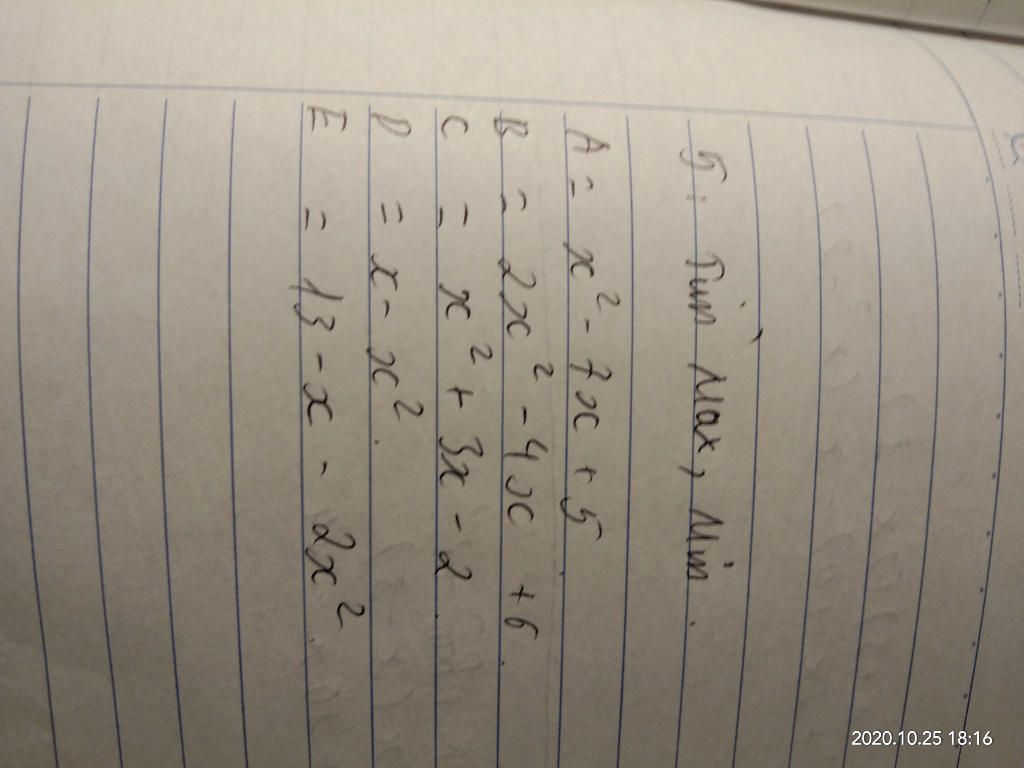 5. Tìm Max, Min.
A = x² - 7x + 5.
B = 2x² - 4x + 6.
C = x² + 3x - 2.
D = x - x².
E = 13 - x - 2x².
2020.10.25 18:16